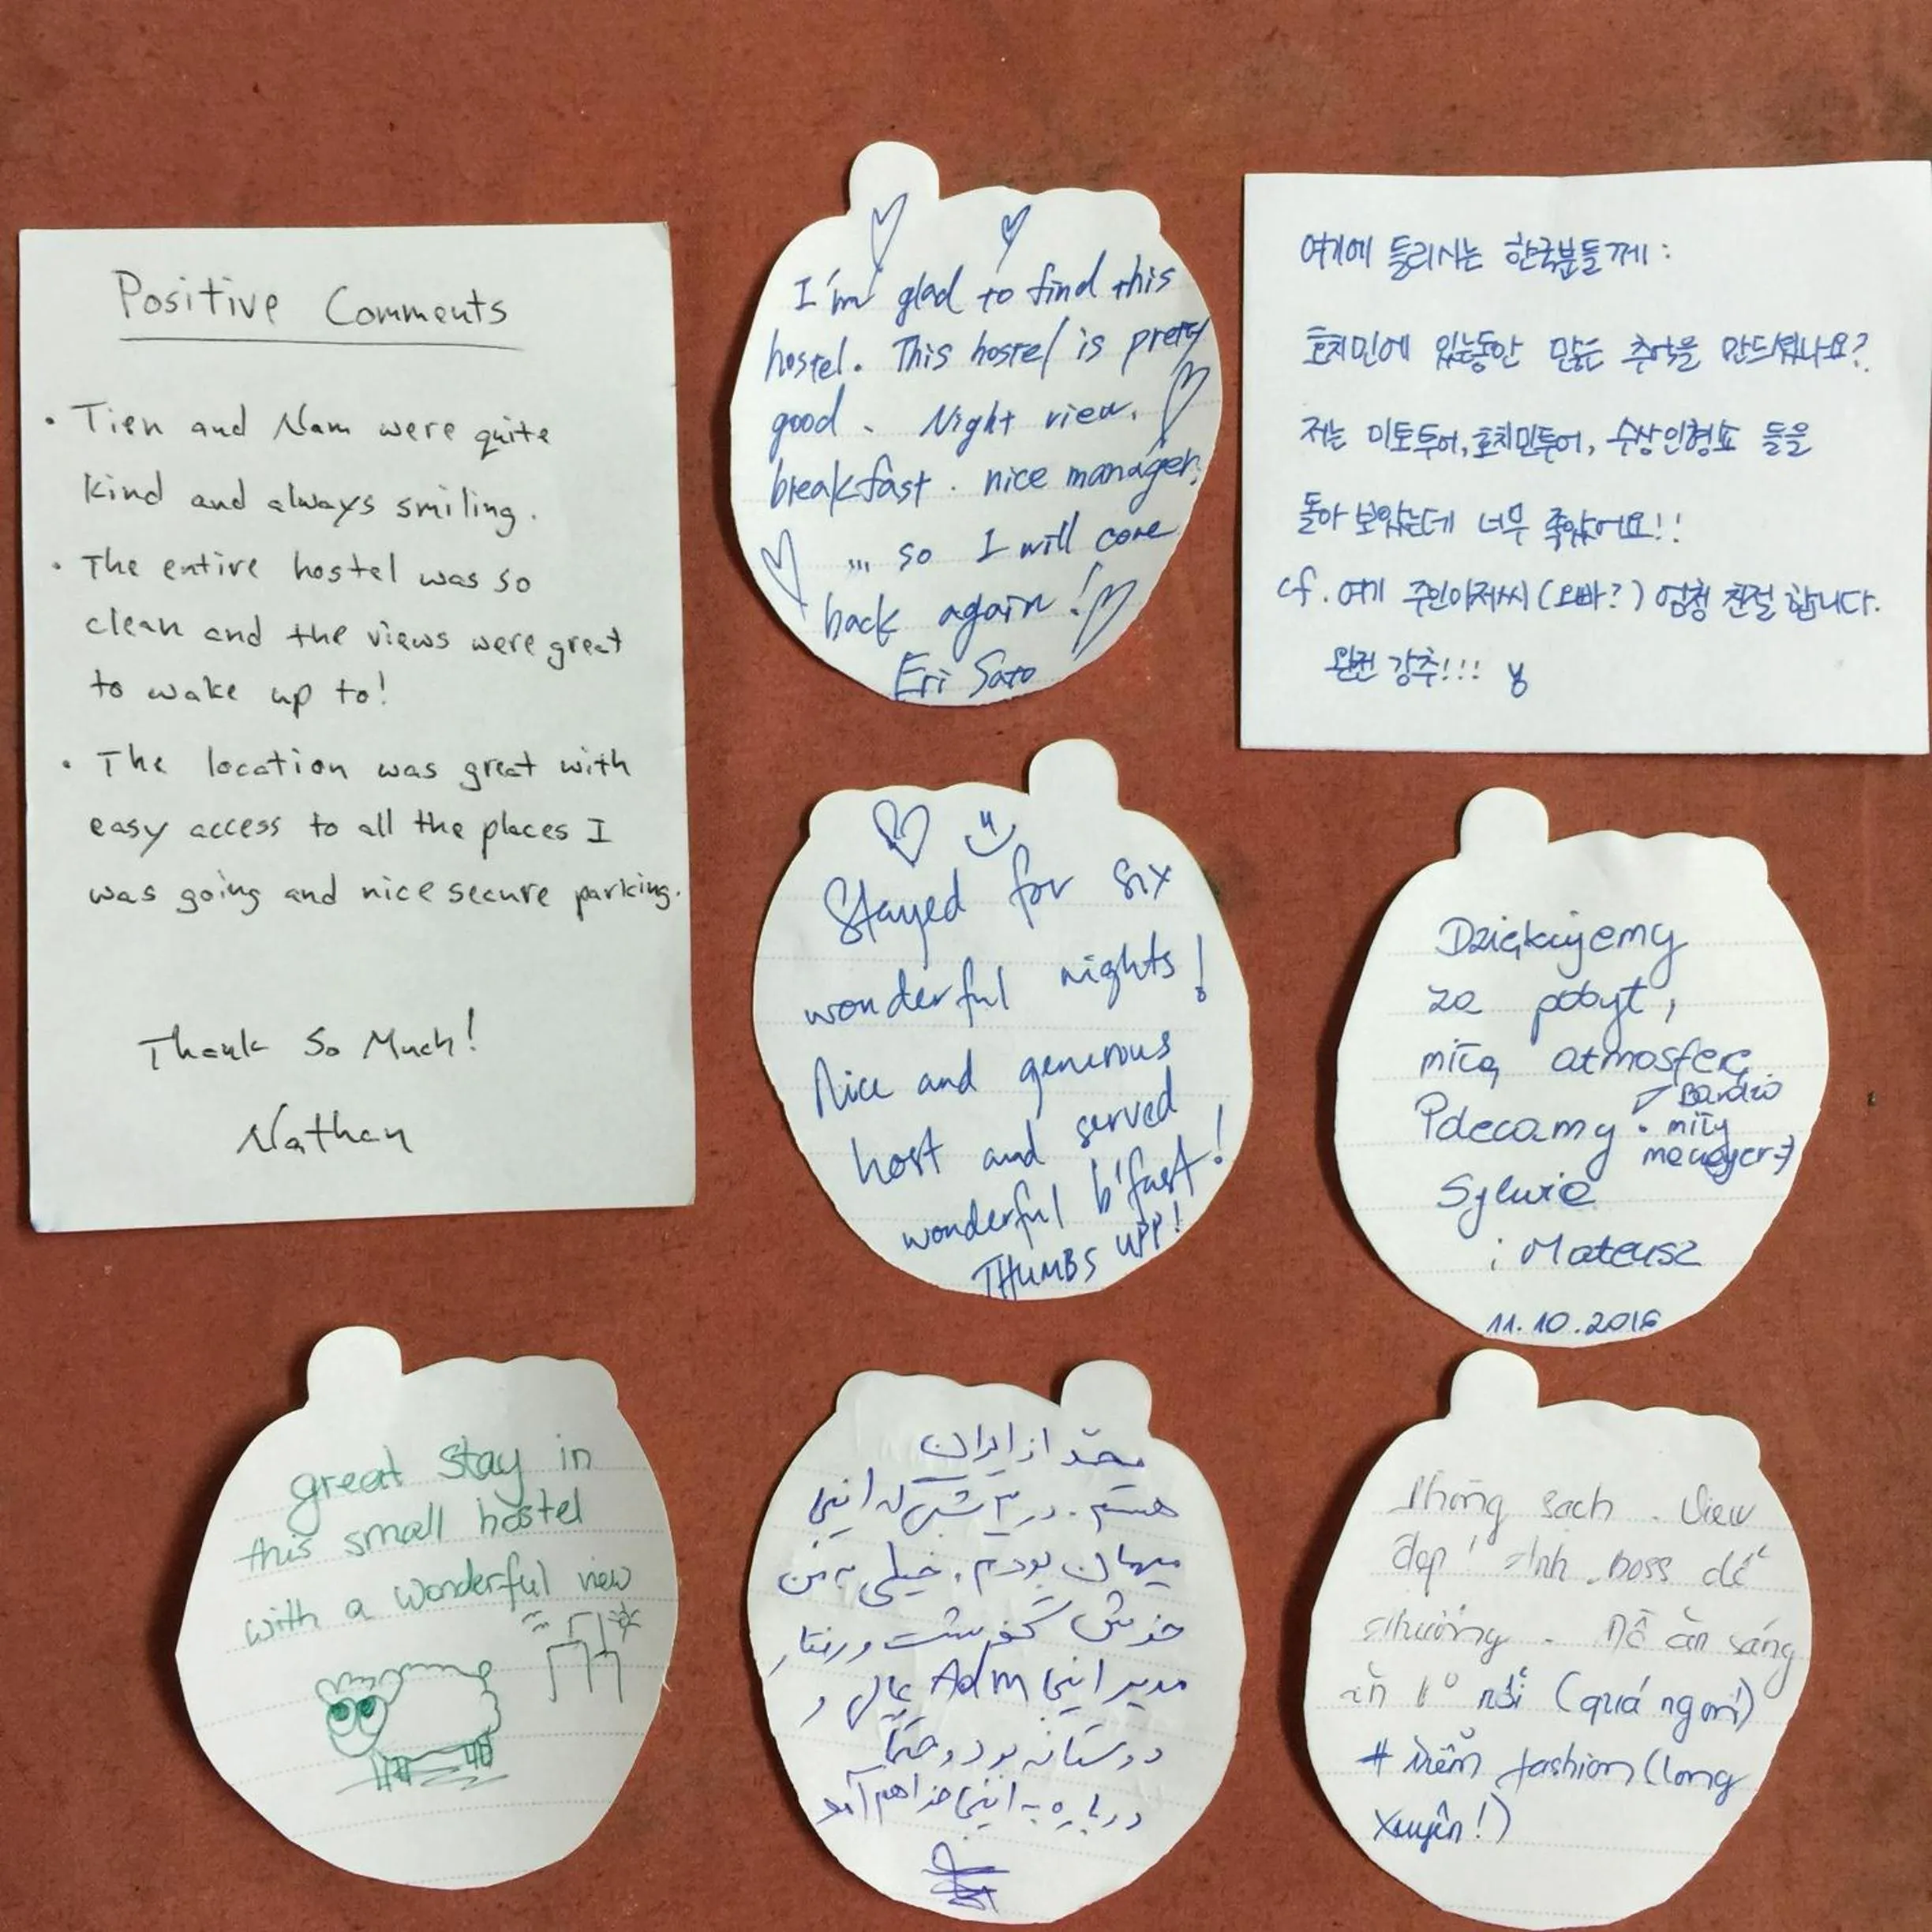 Positive Comments
• Tien and Nam were quite
kind and always smiling.
• The entire hostel was so
clean and the views were great
to wake up to!
• The location was great with
easy access to all the places I
was going and nice secure parking.
Thank So Much!
Nathan
I'm glad to find this
hostel. This hostel is pretty
good. Night view.
breakfast. nice manager.
... so I will come
back again!
Eri Sato
여기에 들리시는 한국분들께:
호치민에 있는동안 많은 추억을 만드셨나요?
저는 미토투어, 호치민투어, 수상인형쇼 들을
돌아 보았는데 너무 좋았어요!!
cf. 여기 주인아저씨(오빠?) 엄청 친절 합니다.
완전 강추!!!
Stayed for six
wonderful nights!
Nice and generous
host and served
wonderful b'fast!
THUMBS UPP!
Dziękujemy
za pobyt,
miłą atmosferę
Polecamy.
Bardzo
miły
menager :)
Sylwia
i Mateusz
11.10.2016
great stay in
this small hostel
with a wonderful view
محمّد از ایران
هستم. در ۳ شبی که اینجا
میهمان بودم، خیلی به من
خوش گذشت و رفتار
مدیر اینجا Adm عالی و
دوستانه بود و حتماً
دوباره به اینجا خواهم آمد
Phòng sạch. View
đẹp! Anh boss dễ
thương. Đồ ăn sáng
ăn tô nồi (quá ngon!)
# trềm fashion (long
xuyên!)